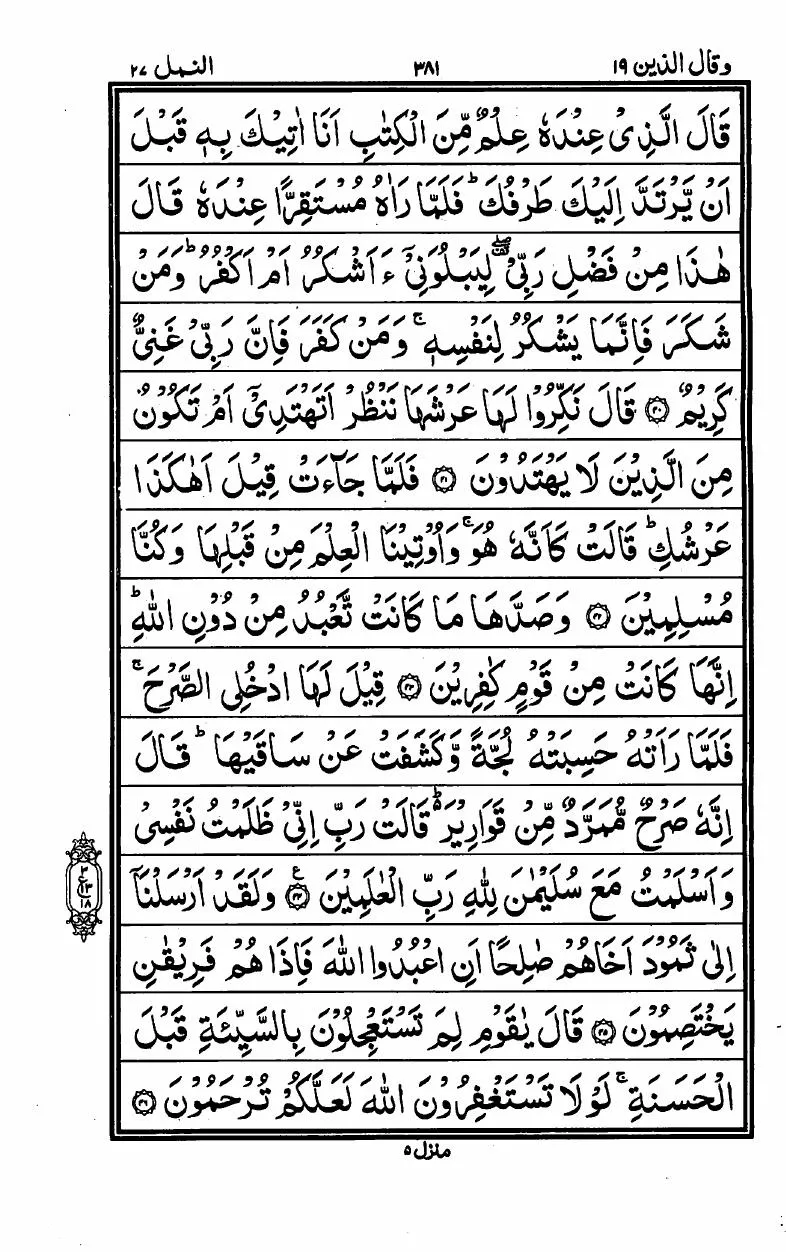 وقال الذين ١٩
٣٨١
النمل ٢٧
قَالَ الَّذِیْ عِنْدَهٗ عِلْمٌ مِّنَ الْكِتٰبِ اَنَا اٰتِیْكَ بِهٖ قَبْلَ
اَنْ یَّرْتَدَّ اِلَیْكَ طَرْفُكَ ؕ فَلَمَّا رَاٰهُ مُسْتَقِرًّا عِنْدَهٗ قَالَ
هٰذَا مِنْ فَضْلِ رَبِّیْ ۖ۫ لِیَبْلُوَنِیْۤ ءَاَشْكُرُ اَمْ اَكْفُرُ ؕ وَمَنْ
شَكَرَ فَاِنَّمَا یَشْكُرُ لِنَفْسِهٖ ۚ وَمَنْ كَفَرَ فَاِنَّ رَبِّیْ غَنِیٌّ
كَرِیْمٌ ۝۴۰ قَالَ نَكِّرُوْا لَهَا عَرْشَهَا نَنْظُرْ اَتَهْتَدِیْۤ اَمْ تَكُوْنُ
مِنَ الَّذِیْنَ لَا یَهْتَدُوْنَ ۝۴۱ فَلَمَّا جَآءَتْ قِیْلَ اَهٰكَذَا
عَرْشُكِ ؕ قَالَتْ كَاَنَّهٗ هُوَ ۚ وَاُوْتِیْنَا الْعِلْمَ مِنْ قَبْلِهَا وَكُنَّا
مُسْلِمِیْنَ ۝۴۲ وَصَدَّهَا مَا كَانَتْ تَّعْبُدُ مِنْ دُوْنِ اللّٰهِ ؕ
اِنَّهَا كَانَتْ مِنْ قَوْمٍ كٰفِرِیْنَ ۝۴۳ قِیْلَ لَهَا ادْخُلِی الصَّرْحَ ۚ
فَلَمَّا رَاَتْهُ حَسِبَتْهُ لُجَّةً وَّكَشَفَتْ عَنْ سَاقَیْهَا ؕ قَالَ
اِنَّهٗ صَرْحٌ مُّمَرَّدٌ مِّنْ قَوَارِیْرَ ؕ۬ قَالَتْ رَبِّ اِنِّیْ ظَلَمْتُ نَفْسِیْ
وَاَسْلَمْتُ مَعَ سُلَیْمٰنَ لِلّٰهِ رَبِّ الْعٰلَمِیْنَ ۝۴۴ ع وَلَقَدْ اَرْسَلْنَاۤ
۳
ع ۱۳
۱۸
اِلٰی ثَمُوْدَ اَخَاهُمْ صٰلِحًا اَنِ اعْبُدُوا اللّٰهَ فَاِذَا هُمْ فَرِیْقٰنِ
یَخْتَصِمُوْنَ ۝۴۵ قَالَ یٰقَوْمِ لِمَ تَسْتَعْجِلُوْنَ بِالسَّیِّئَةِ قَبْلَ
الْحَسَنَةِ ۚ لَوْلَا تَسْتَغْفِرُوْنَ اللّٰهَ لَعَلَّكُمْ تُرْحَمُوْنَ ۝۴۶
منزل ۵